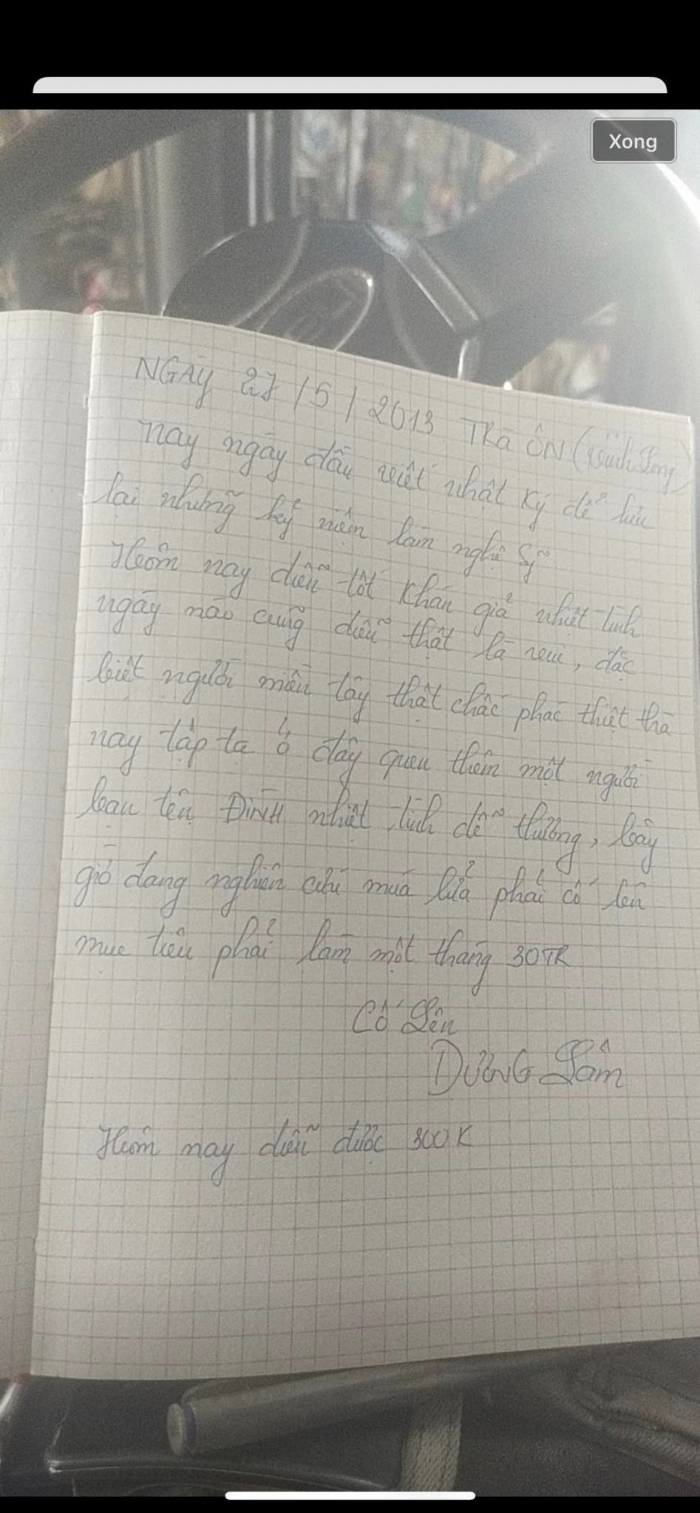 Xong
NGÀY 27/5/2013 TRÀ ÔN (Vĩnh Long)
nay ngày đầu viết nhật ký để lưu
lại những kỷ niệm làm nghệ sỹ
Hôm nay diễn tốt khán giả nhiệt tình
ngày nào cũng diễn thật là vui, đặc
biệt người miền tây thật chấc phác thiệt thà
nay tấp tạ ở đây quen thêm một người
bạn tên ĐINH nhiệt tình dễ thương, bây
giờ đang nghiên cứu múa lửa phải cố lên
mục tiêu phải làm một tháng 30TR
Cố Lên
DƯƠNG Lâm
Hôm nay diễn được 300K